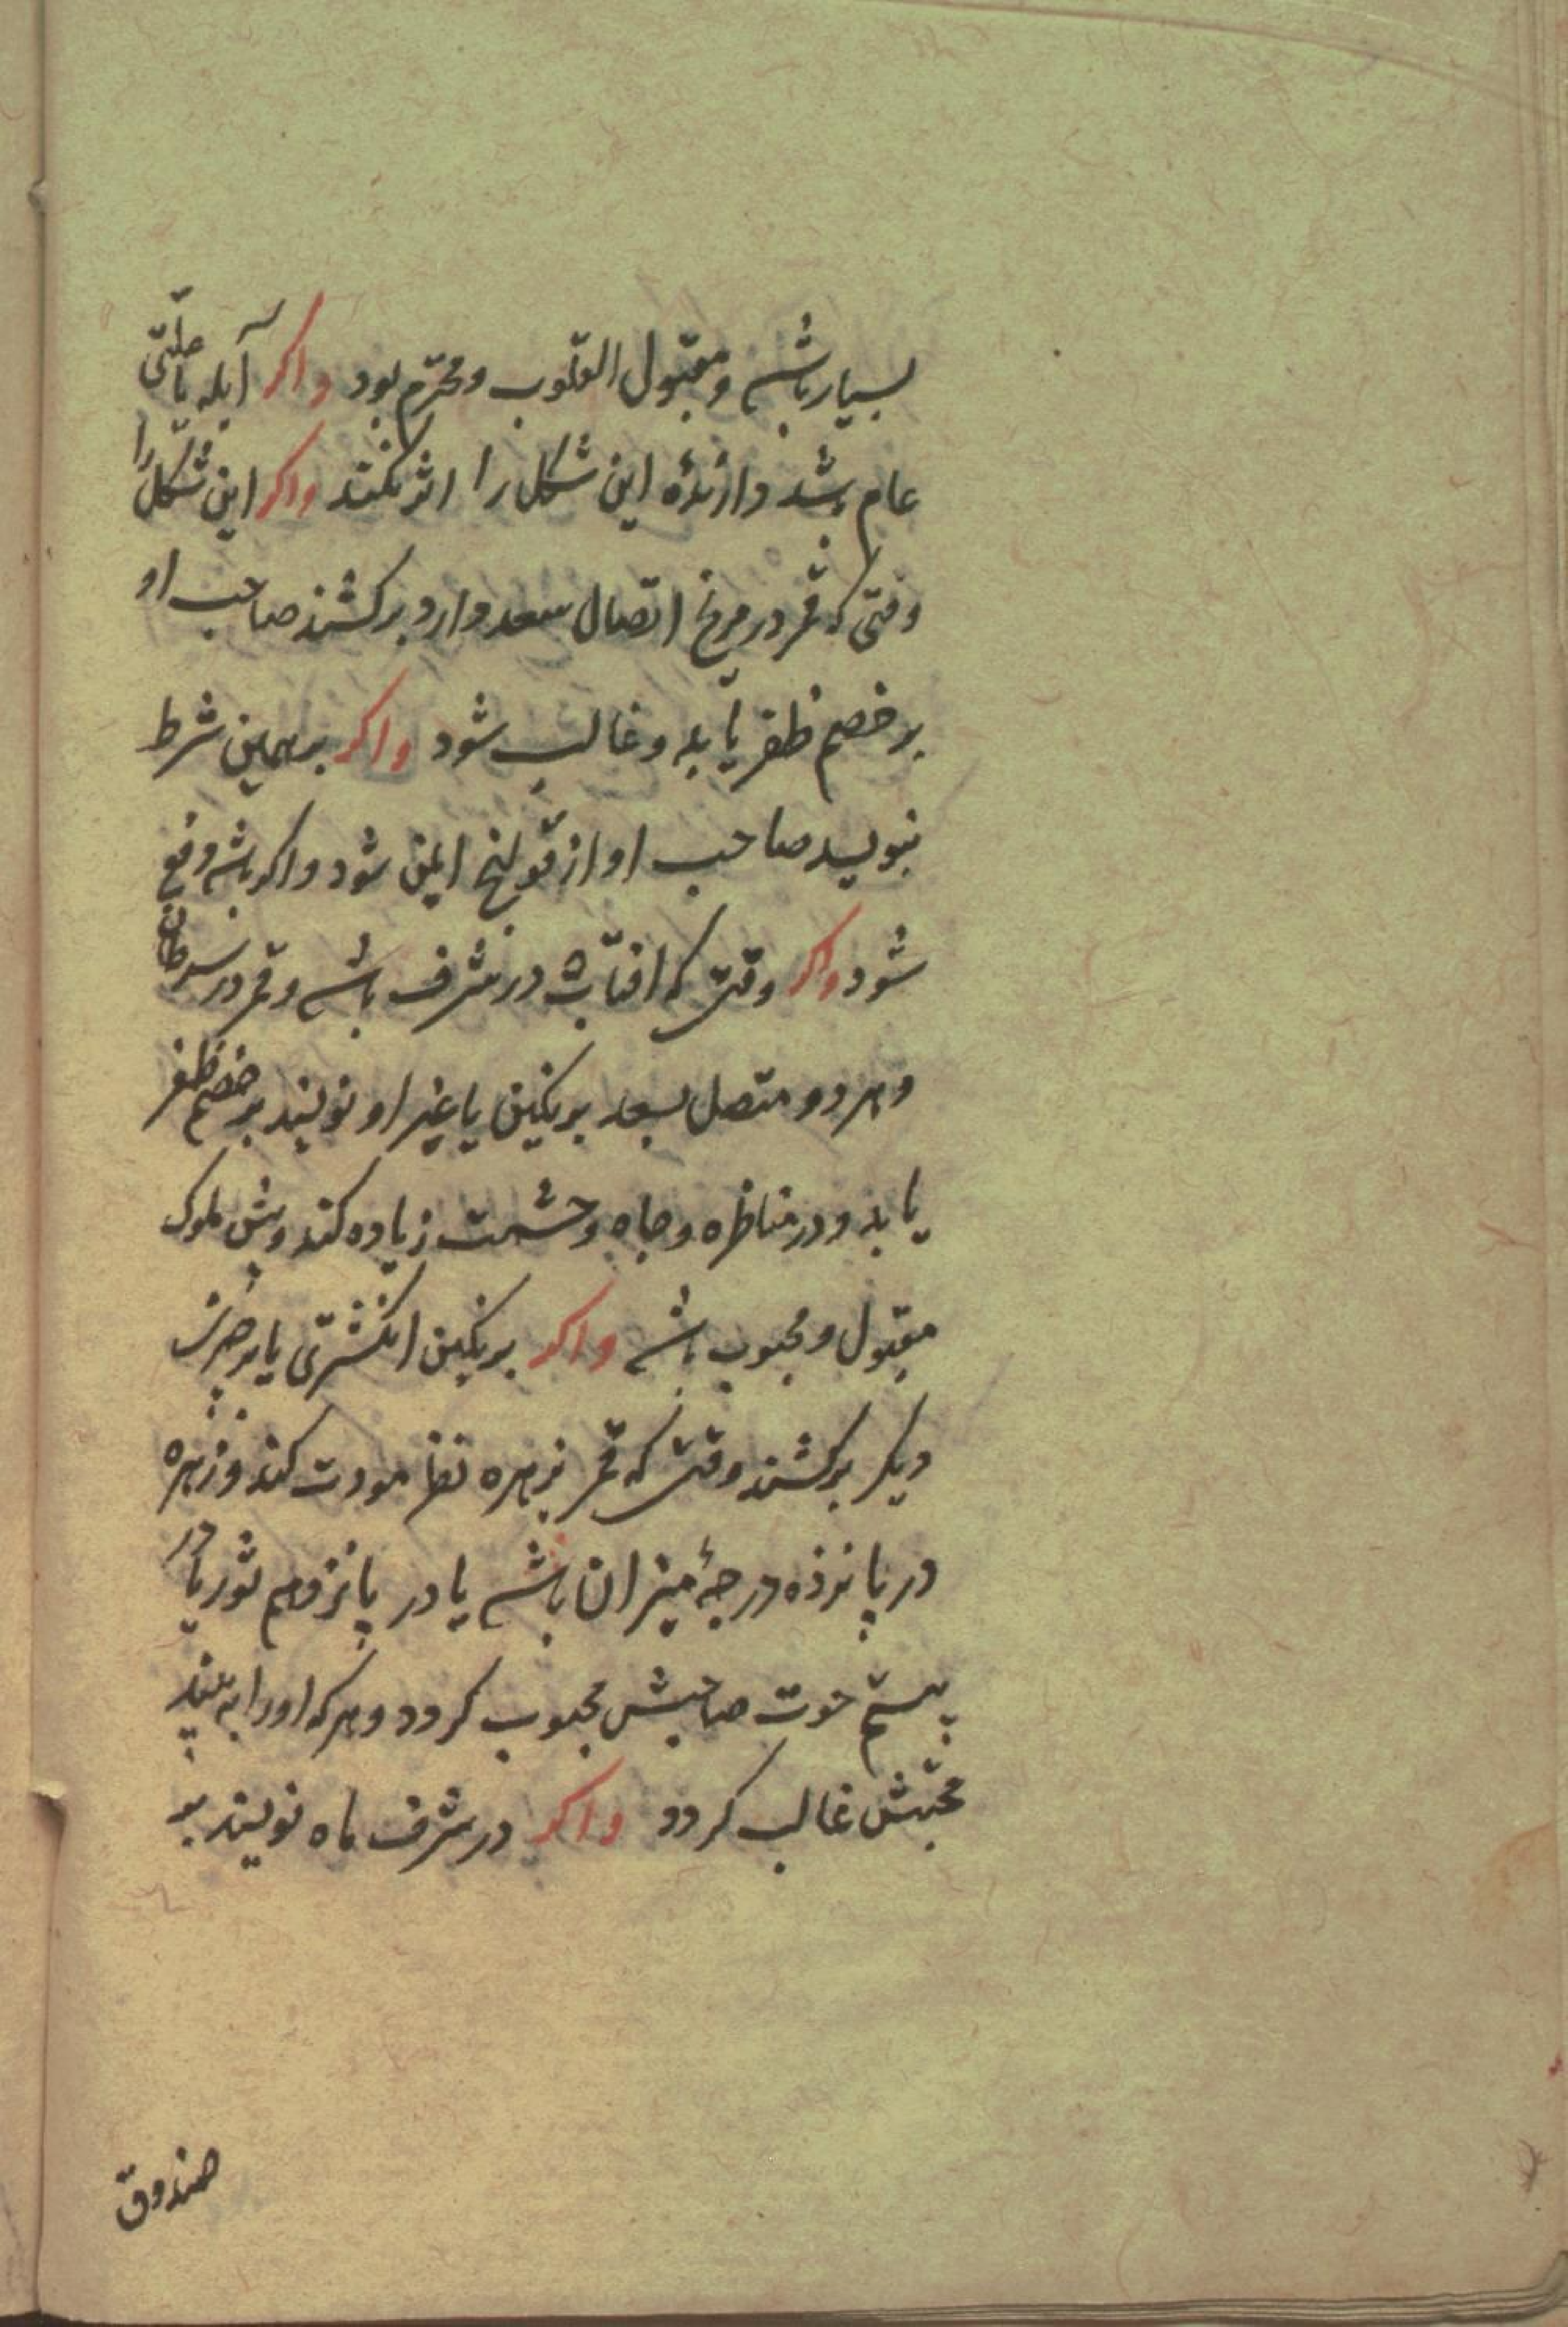 بسیار باشد و مقبول القلوب و محترم بود واکر آبله یا علتی
عام باشد دارندۀ این شکل را اثر نکند واکر این شکل را
وقتی که قمر در مریخ اتصال سعد دارد برکشند صاحب او
بر خصم ظفر یابد و غالب شود واکر بر همین شرط
بنویسد صاحب او از قولنج ایمن شود واکر باشد دفع
شود واکر وقتی که افتاب در شرف باشد و قمر در سرطان
و هر دو متصل بسعد بر نکین یا غیر او نویسند بر خصم ظفر
یابد و در مناظره و جاه و حشمت زیاده کند و پیش ملوک
مقبول و محبوب باشد واکر بر نکین انکشتری یا بر چیزی
دیکر برکشند وقتی که قمر بزهره نظر مودت کند و زهره
در پانزده درجۀ میزان باشد یا در پانزدهم ثور یا در
بیستم حوت صاحبش محبوب کردد و هر که او را به بیند
محبتش غالب کردد واکر در شرف ماه نویسند بر
صندوق